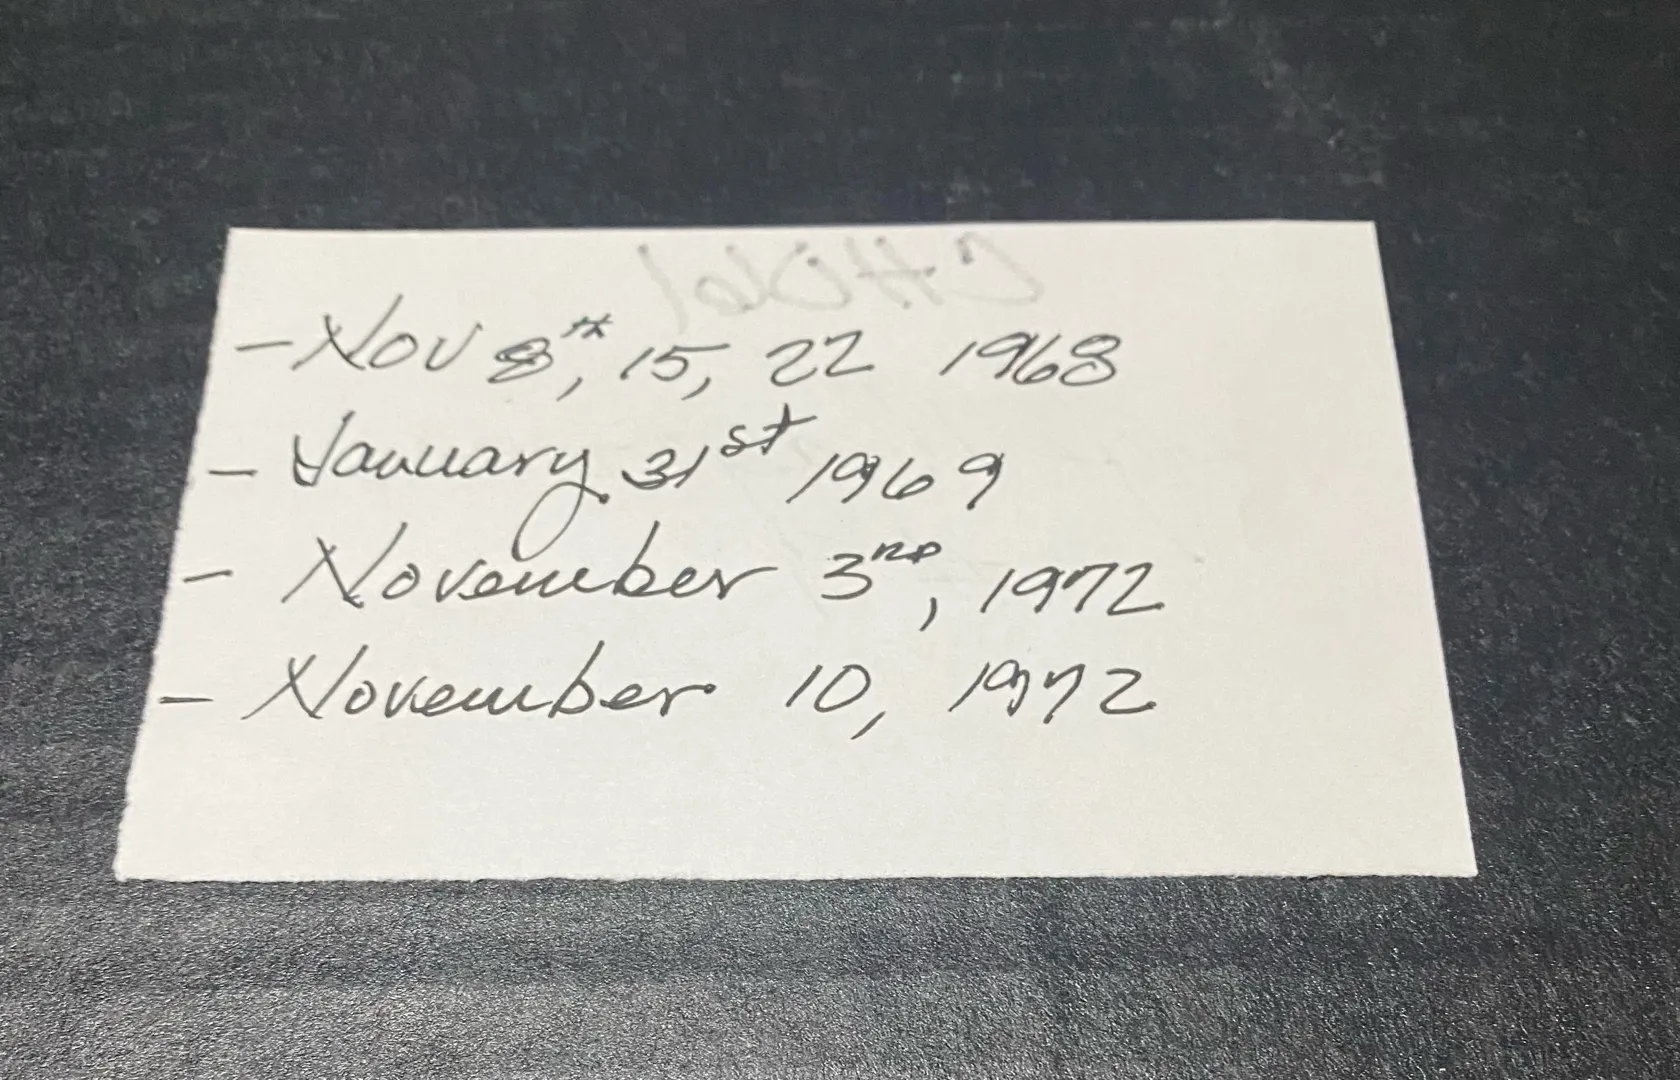 - Nov 8th, 15, 22 1968
- January 31st 1969
- November 3rd, 1972
- November 10, 1972